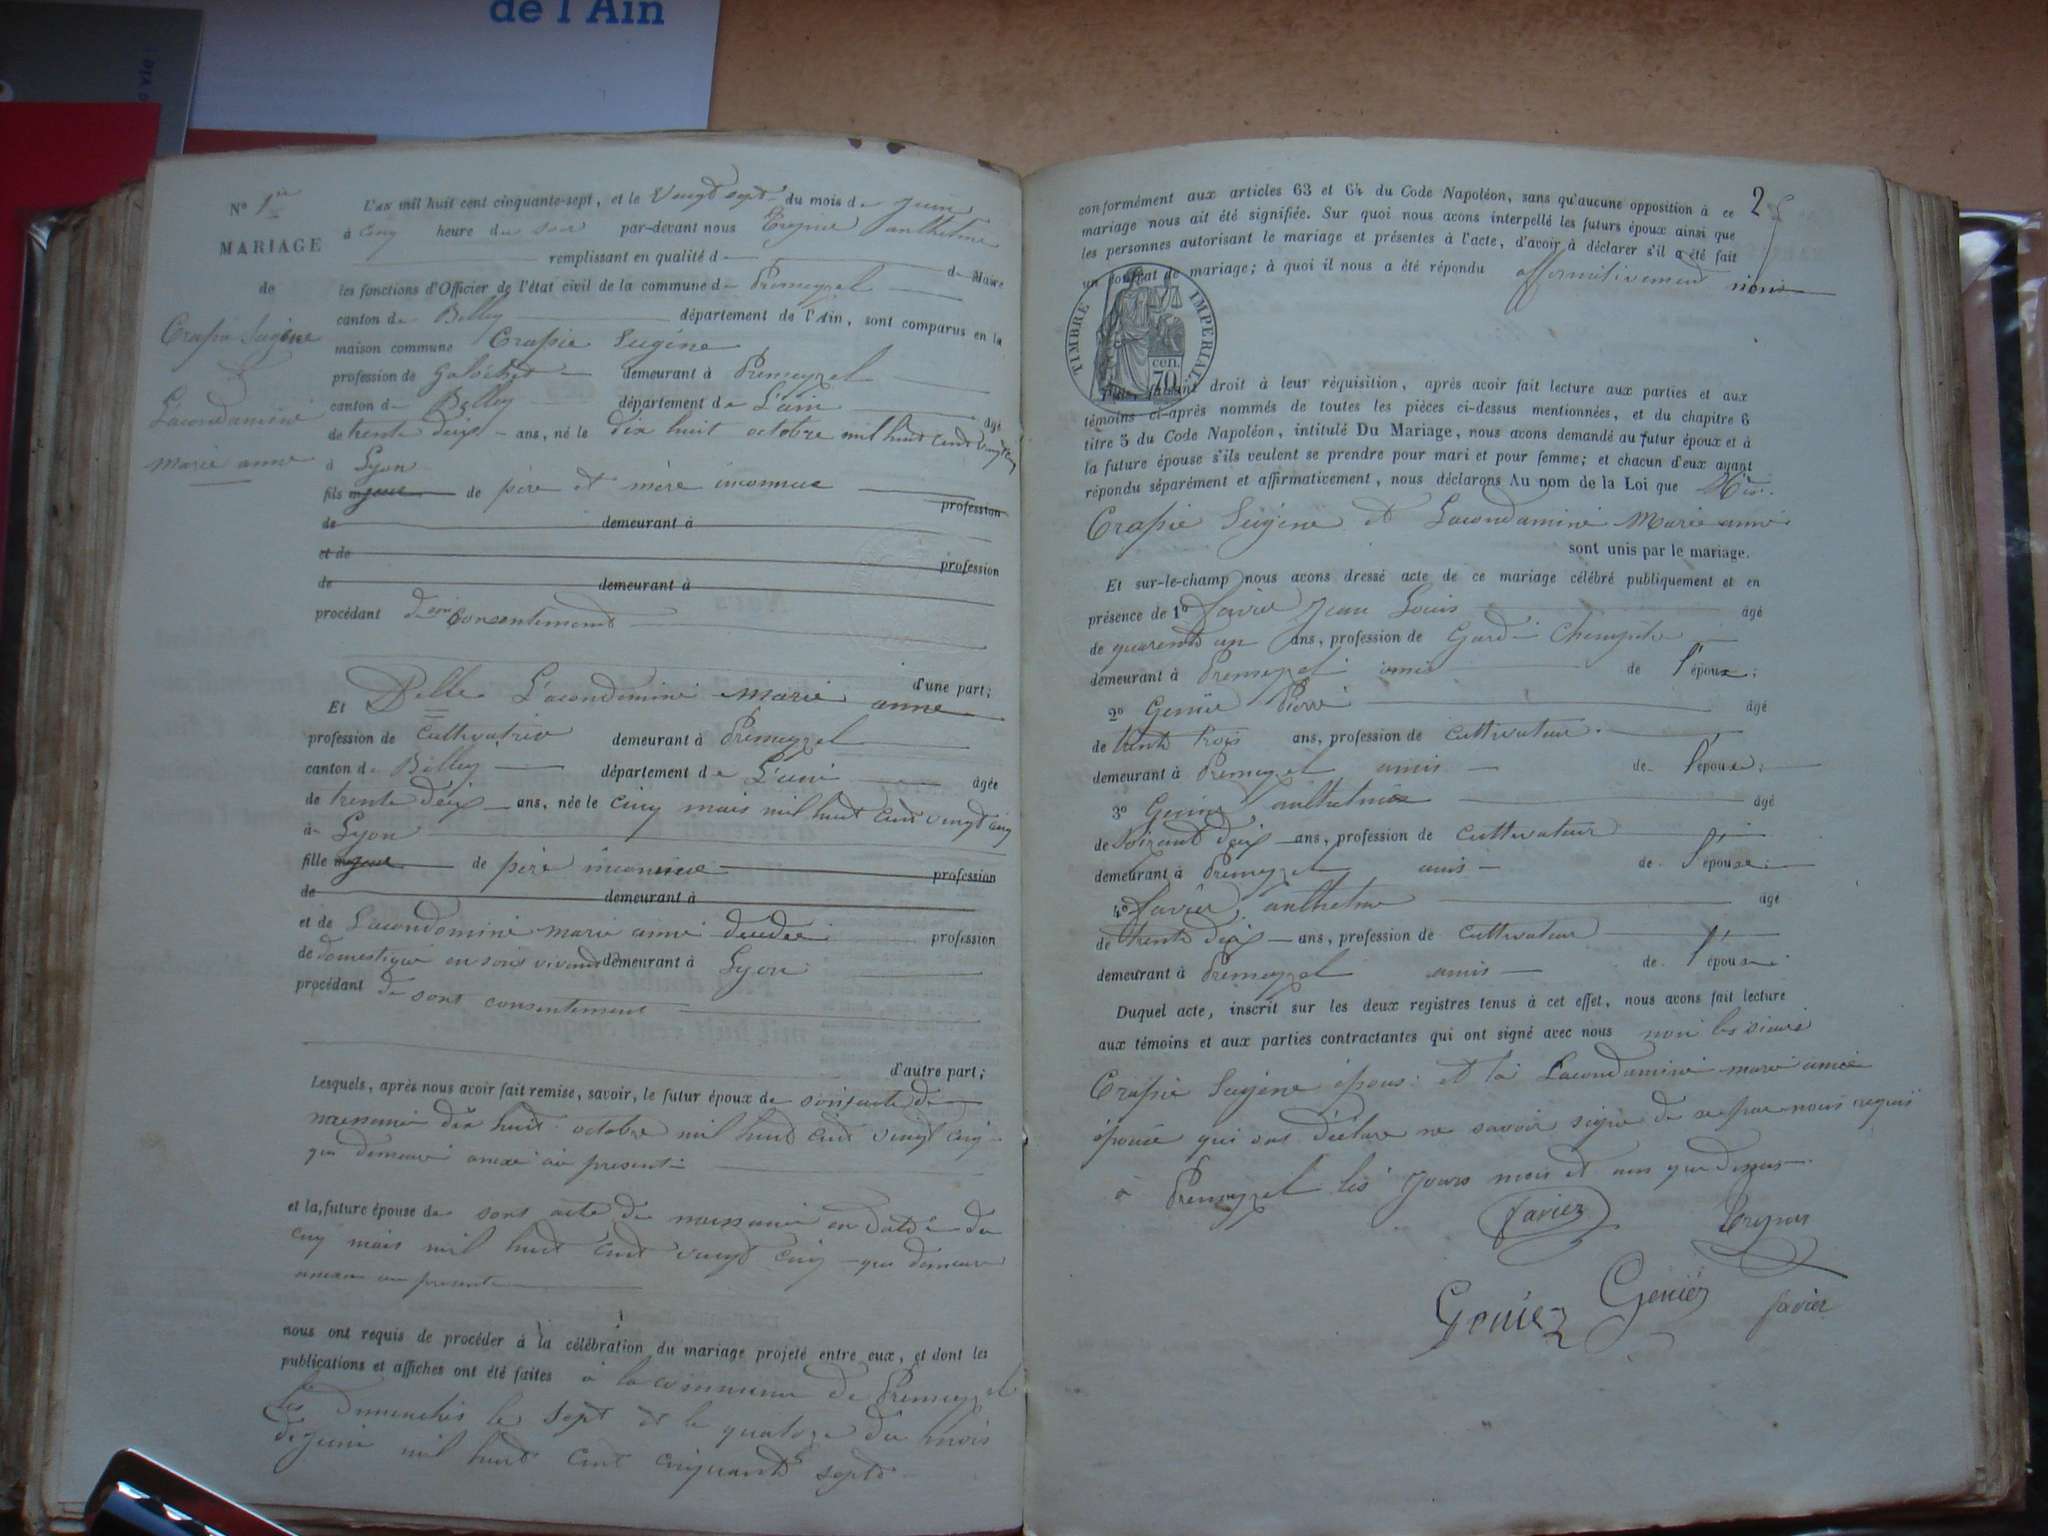 de l'Ain
a vie!
N° 1er
MARIAGE
de
Crapie Eugène
et
Lacondamine
Marie anne
L'AN mil huit cent cinquante-sept, et le Vingt sept du mois de juin
à cinq heure du soir par-devant nous Treynie anthelme
remplissant en qualité d de Maire
les fonctions d'Officier de l'état civil de la commune de Prémeyzel
canton de Belley département de l'Ain, sont comparus en la
maison commune Crapie Eugène
profession de Galochet demeurant à Prémeyzel
canton de Belley département de L'ain âgé
de trente deux ans, né le dix huit octobre mil huit cent vingt cinq
à Lyon
fils majeur de père et mère inconnue profession
de demeurant à
et de profession
de demeurant à
procédant de son consentement
d'une part;
Et Delle Lacondamine Marie anne
profession de Cultivatrice demeurant à Prémeyzel
canton de Belley département de L'ain âgée
de trente deux ans, née le cinq mais mil huit cent vingt cinq
à Lyon
fille majeure de père inconnue profession
de demeurant à
et de Lacondamine marie anne décédée profession
de domestique en sont vivant demeurant à Lyon
procédant de sont consentement
d'autre part;
Lesquels, après nous avoir fait remise, savoir, le futur époux de son acte de
naissance dix huit octobre mil huit cent vingt cinq
qui demeure anexé au present
et la future épouse de sont acte de naissance en datte du
cinq mais mil huit cent vingt cinq qui demeure
anexé au present
nous ont requis de procéder à la célébration du mariage projeté entre eux, et dont les
publications et affiches ont été faites à la commune de Prémeyzel
les dimenches le sept et le quatorze du mois
de juin mil huit cent cinquante sept
2
conformément aux articles 63 et 64 du Code Napoléon, sans qu'aucune opposition à ce
mariage nous ait été signifiée. Sur quoi nous avons interpellé les futurs époux ainsi que
les personnes autorisant le mariage et présentes à l'acte, d'avoir à déclarer s'il a été fait
un contrat de mariage; à quoi il nous a été répondu affirmativement non
TIMBRE IMPERIAL
cen.
70
faisant droit à leur réquisition, après avoir fait lecture aux parties et aux
témoins ci-après nommés de toutes les pièces ci-dessus mentionnées, et du chapitre 6
titre 5 du Code Napoléon, intitulé Du Mariage, nous avons demandé au futur époux et à
la future épouse s'ils veulent se prendre pour mari et pour femme; et chacun d'eux ayant
répondu séparément et affirmativement, nous déclarons Au nom de la Loi que
Crapie Eugène et Lacondamine Marie anne
sont unis par le mariage.
Et sur-le-champ nous avons dressé acte de ce mariage célébré publiquement et en
présence de 1° Favier Jean Louis âgé
de quarente un ans, profession de Garde Champêtre
demeurant à Prémeyzel amis de l'époux;
2° Genièz Pierre âgé
de trente trois ans, profession de cultivateur
demeurant à Prémeyzel amis de l'épouse;
3° Genièz anthelme âgé
de soixante deux ans, profession de cultivateur
demeurant à Prémeyzel amis de l'épouse;
4° Favier anthelme âgé
de trente deux ans, profession de cultivateur
demeurant à Prémeyzel amis de l'épouse
Duquel acte, inscrit sur les deux registres tenus à cet effet, nous avons fait lecture
aux témoins et aux parties contractantes qui ont signé avec nous non les sieurs
Crapie Eugène époux et la Lacondamine marie anne
épouse qui ont déclaré ne savoir signé de ce par nous requis
à Prémeyzel les jours mois et ans que dessus
Faviez
Geniez Geniéz Favier